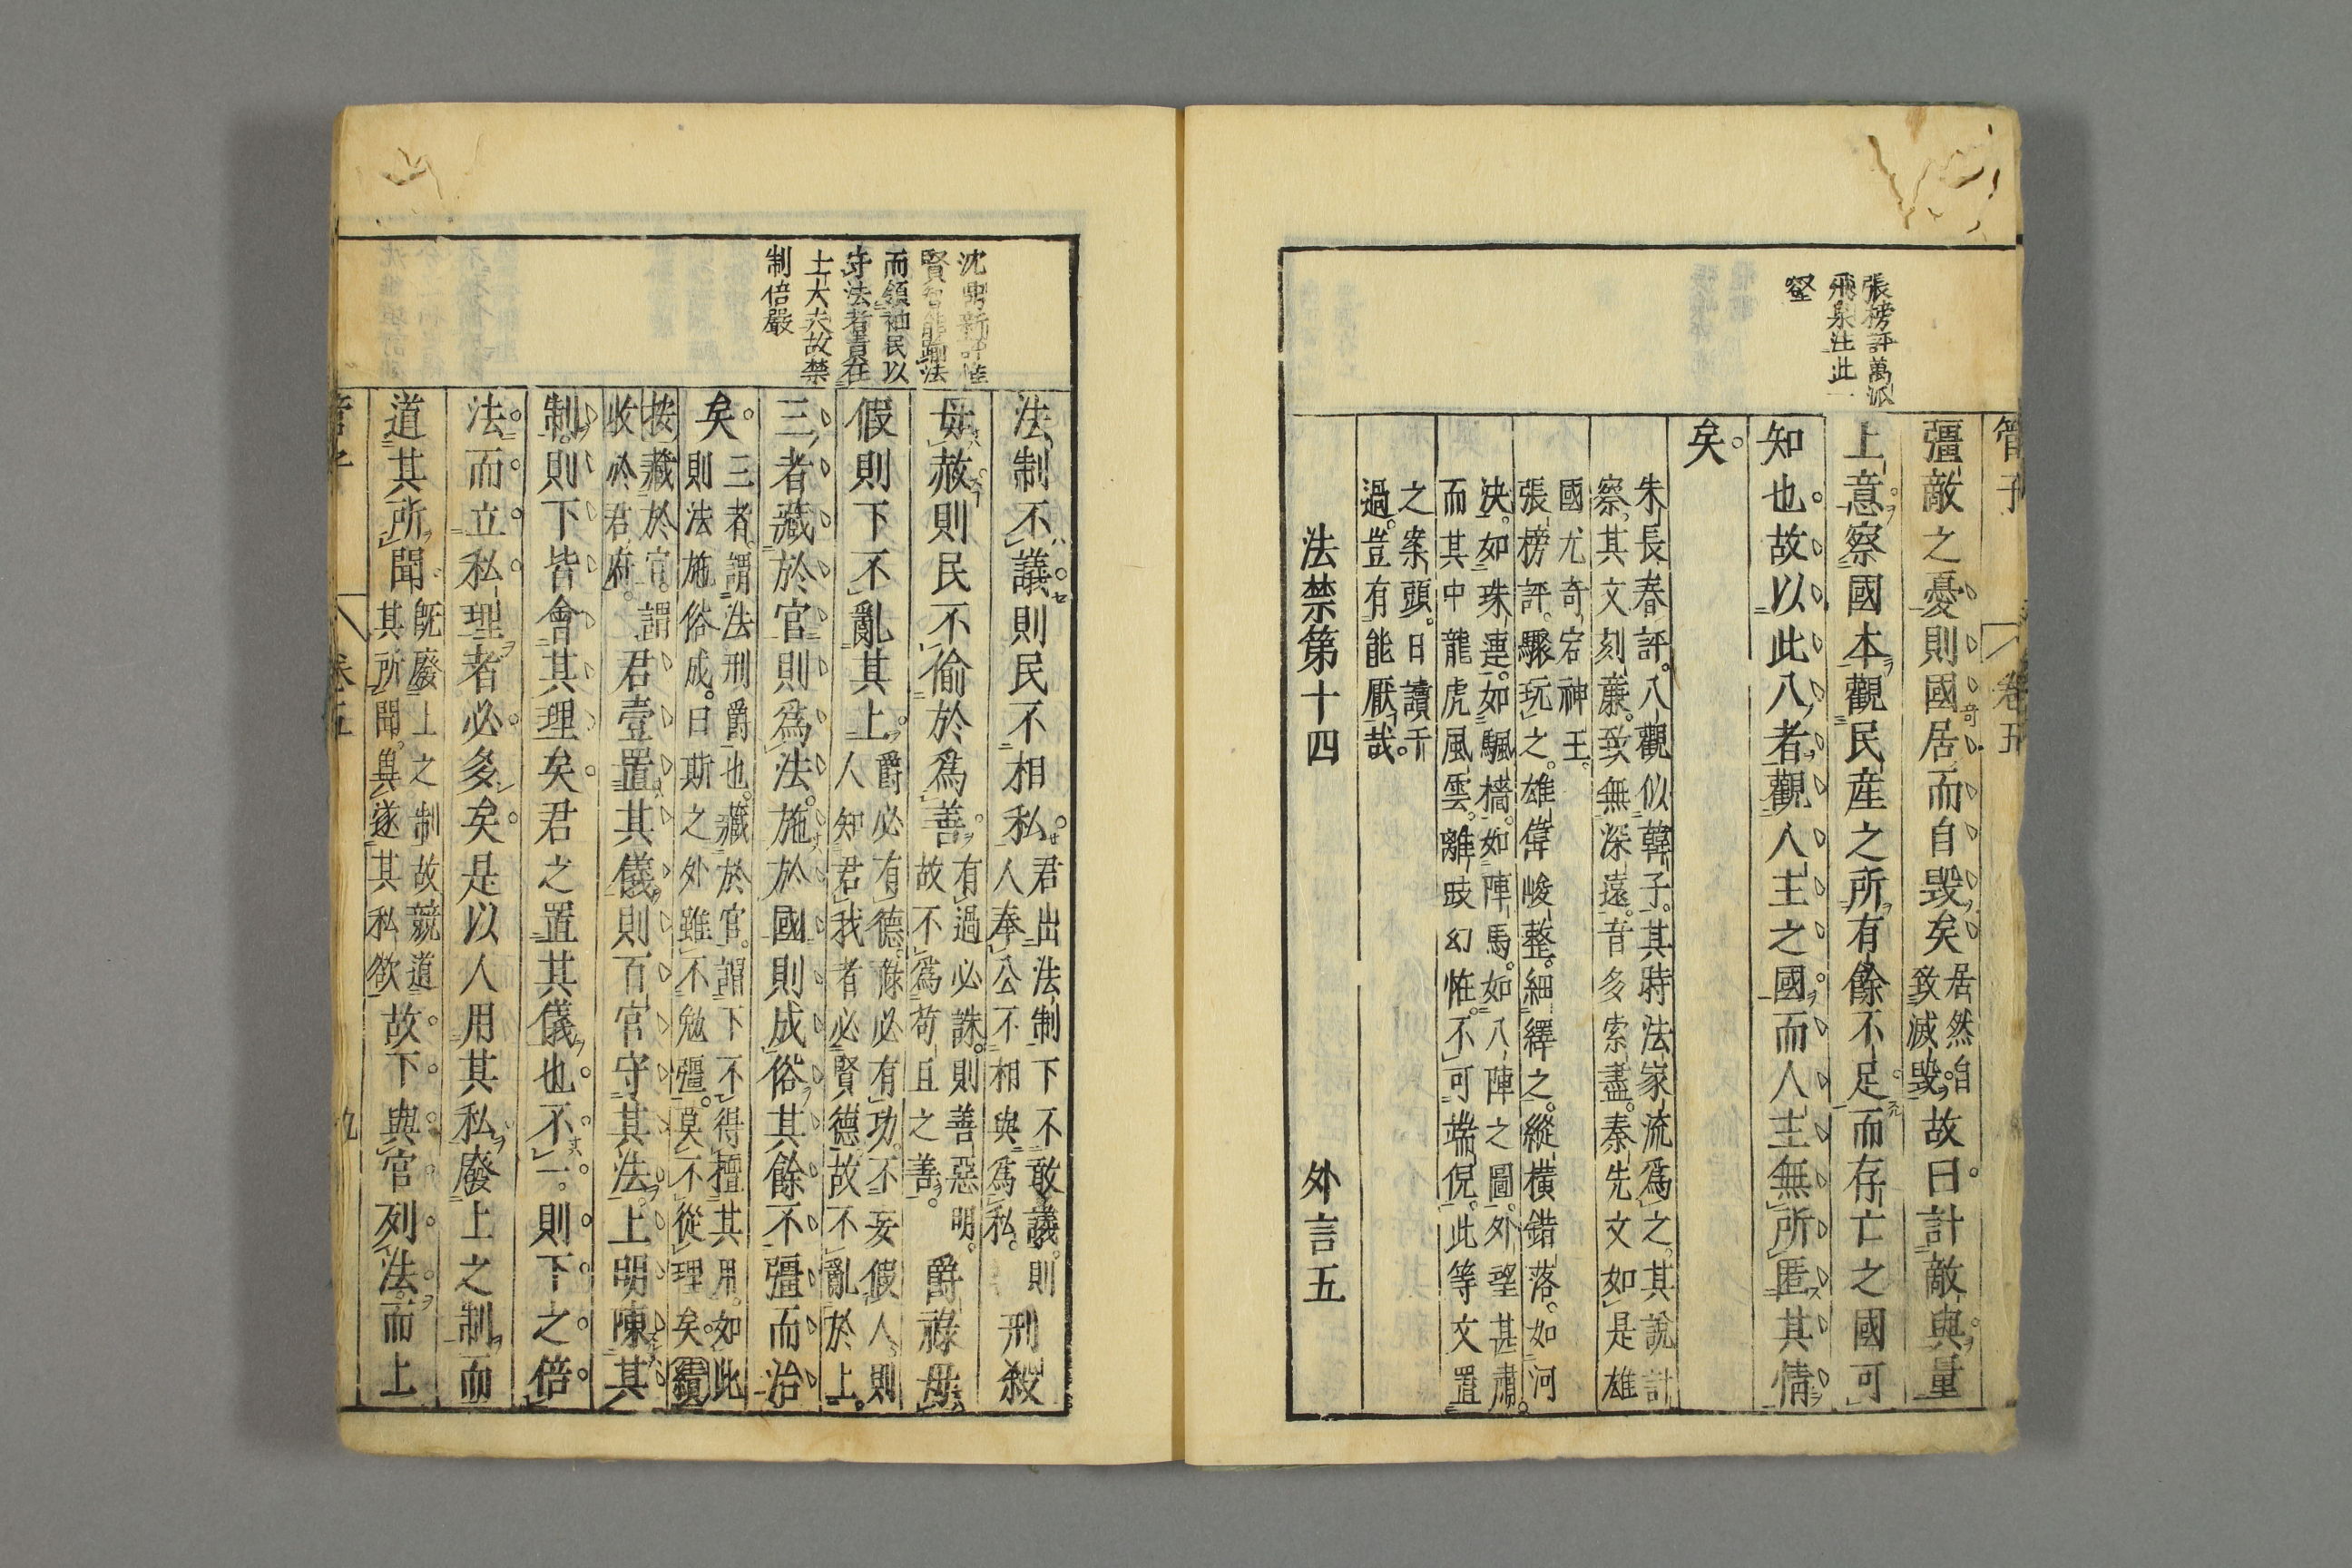 管子
卷五
張榜評萬派
飛泉注此一
壑
彊敵之憂則國居而自毀矣居然自
致滅毀故曰計敵與量
上意察國本觀民產之所有餘不足而存亡之國可
知也故以此八者觀人主之國而人主無所匿其情
矣
朱長春評八觀似韓子其時法家流爲之其說計
察其文刻廉致無深遠音多索盡秦先文如是雄
國尤奇宕神王
張榜評驟玩之雄偉峻整細繹之縱橫錯落如河
決如珠連如颿檣如陣馬如八陣之圖外望甚肅
而其中龍虎風雲離歧幻怪不可端倪此等文置
之案頭日讀千
過豈有能厭哉
法禁第十四 外言五
沈鼎新評惟
賢智能踰法
而領袖民以
守法者責在
士大夫故禁
制倍嚴
法制不議則民不相私君出法制下不敢議則
人奉公不相與爲私刑殺
毋赦則民不偷於爲善有過必誅則善惡明
故不爲苟且之善爵祿毋
假則下不亂其上爵必有德祿必有功不妄假人則
人知君我者必賢德故不亂於上
三者藏於官則爲法施於國則成俗其餘不彊而治
矣三者謂法刑爵也藏於官謂下不得擅其用如此
則法施俗成曰斯之外雖不勉彊莫不從理矣續
按藏於官謂
收於君府君壹置其儀則百官守其法上明陳其
制則下皆會其理矣君之置其儀也不一則下之倍
法而立私理者必多矣是以人用其私廢上之制而
道其所聞既廢上之制故競道
其所聞與遂其私欲故下與官列法而上
管子
卷五
九